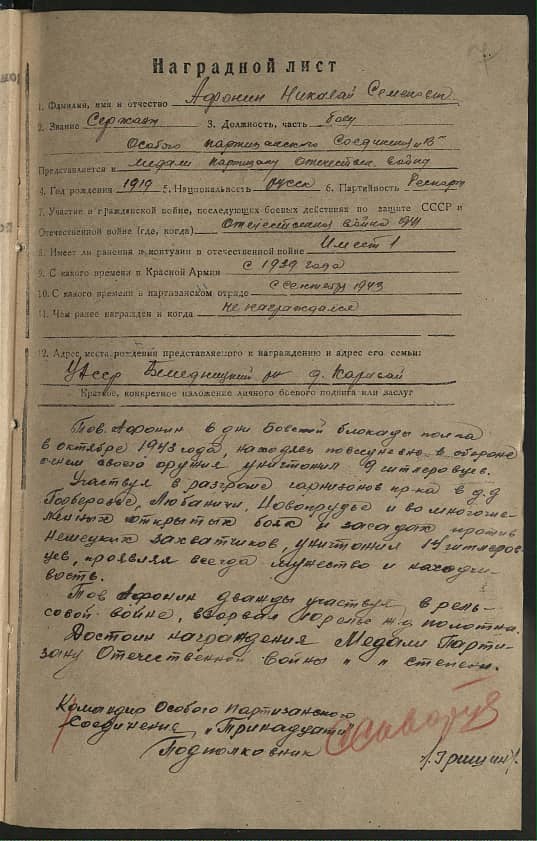 Наградной лист
1. Фамилия, имя и отчество Афонин Николай Семенович
2. Звание Сержант 3. Должность, часть боец
Особого партизанского Соединения "13"
Представляется к медали партизану Отечествен. войны
4. Год рождения 1919 5. Национальность русск 6. Партийность
7. Участие в гражданской войне, последующих боевых действиях по защите СССР и
Отечественной войне (где, когда) Отечественная война 1941
8. Имеет ли ранения и контузии в отечественной войне Имеет 1
9. С какого времени в Красной Армии с 1939 года
10. С какого времени в партизанском отряде с сентября 1943
11. Чем ранее награжден и когда не награждался
12. Адрес места рождения представляемого к награждению и адрес его семьи:
УАССР д.
Краткое, конкретное изложение личного боевого подвига или заслуг
Тов. Афонин в дни боевой блокады полка
в октябре 1943 года, находясь повсуневно в обороне
огнем своего оружия уничтожил 9 гитлеровцев.
Участвуя в разгроме гарнизонов пр-ка в д.д
Любаничи, Новопрудье и во многочис-
ленных открытых боях и засадах против
немецких захватчиков, уничтожил 14 гитлеров-
цев, проявляя всегда мужество и находчи-
вость.
Тов Афонин дважды участвуя в рель-
совой войне, взорвал ж.д полотна.
Достоин награждения Медали Парти-
зану Отечественной войны " " степени.
Командир Особого партизанского
Соединения "Тринадцать"
Подполковник
/Гришин/